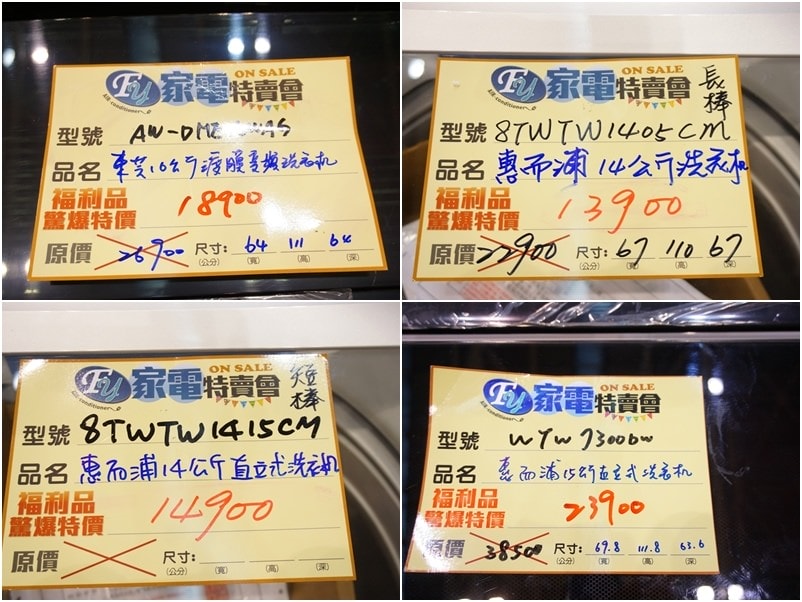 ON SALE
FY 家電特賣會
Air conditioner
型號 AW-DM
品名 東芝16公斤鍍膜變頻洗衣机
福利品
驚爆特價 18900
原價 26900 尺寸: 64 111 64
(公分) (寬) (高) (深)
ON SALE
FY 家電特賣會 長棒
Air conditioner
型號 8TWTW1405CM
品名 惠而浦14公斤洗衣机
福利品
驚爆特價 13900
原價 22900 尺寸: 67 110 67
(公分) (寬) (高) (深)
ON SALE
FY 家電特賣會 短棒
Air conditioner
型號 8TWTW1415CM
品名 惠而浦14公斤直立式洗衣机
福利品
驚爆特價 14900
原價 尺寸:
(公分) (寬) (高) (深)
ON SALE
FY 家電特賣會
Air conditioner
型號 WTW7300DW
品名 惠而浦15公斤直立式洗衣机
福利品
驚爆特價 23900
原價 38500 尺寸: 69.8 111.8 63.6
(公分) (寬) (高) (深)